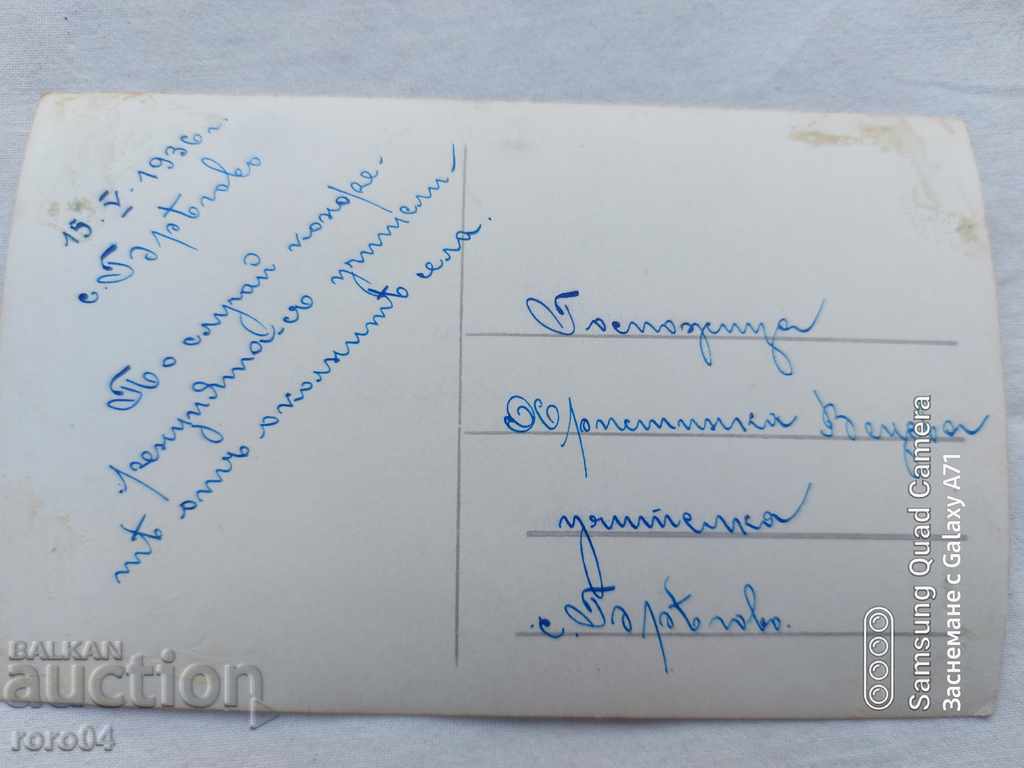 15. V. 1936 г.
с. Бързѣгово
По случай конфе-
ренцията съ учители-
тѣ отъ околнитѣ села.
Госпожица
Христинка
учителка
с. Бързѣгово.
BALKAN
auction
roro04
Samsung Quad Camera
Заснемане с Galaxy A71